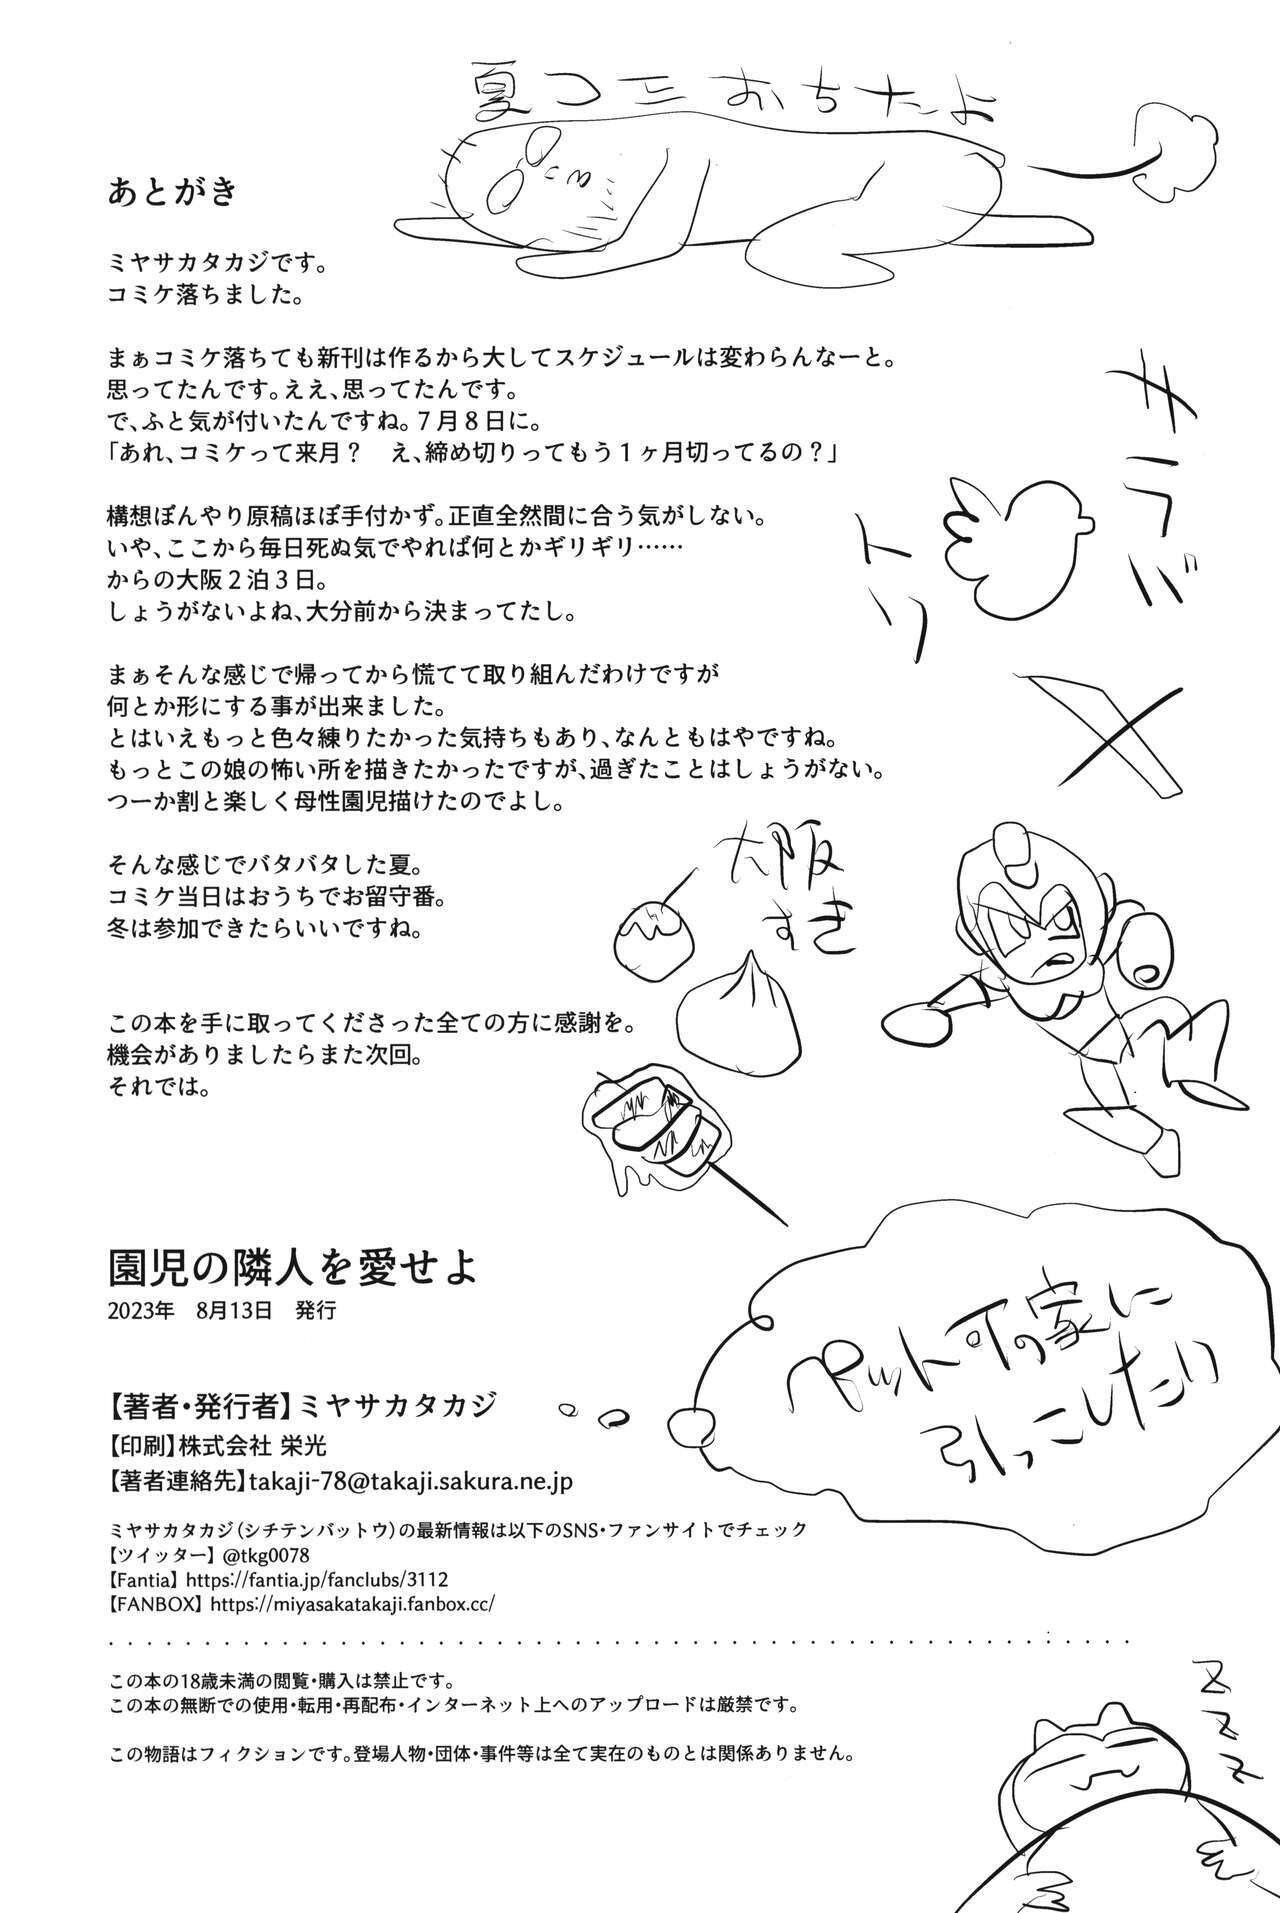 夏コミおちたよ
あとがき
ミヤサカタカジです。
コミケ落ちました。
まぁコミケ落ちても新刊は作るから大してスケジュールは変わらんなーと。
思ってたんです。ええ、思ってたんです。
で、ふと気が付いたんですね。７月８日に。
「あれ、コミケって来月？　え、締め切りってもう１ヶ月切ってるの？」
構想ぼんやり原稿ほぼ手付かず。正直全然間に合う気がしない。
いや、ここから毎日死ぬ気でやれば何とかギリギリ……
からの大阪２泊３日。
しょうがないよね、大分前から決まってたし。
まぁそんな感じで帰ってから慌てて取り組んだわけですが
何とか形にする事が出来ました。
とはいえもっと色々練りたかった気持ちもあり、なんともはやですね。
もっとこの娘の怖い所を描きたかったですが、過ぎたことはしょうがない。
つーか割と楽しく母性園児描けたのでよし。
そんな感じでバタバタした夏。
コミケ当日はおうちでお留守番。
冬は参加できたらいいですね。
この本を手に取ってくださった全ての方に感謝を。
機会がありましたらまた次回。
それでは。
サラバ
トリ
X
大阪
すき
ペット可の家に
引っこしたい
園児の隣人を愛せよ
2023年　8月13日　発行
【著者・発行者】ミヤサカタカジ
【印刷】株式会社 栄光
【著者連絡先】takaji-78@takaji.sakura.ne.jp
ミヤサカタカジ（シチテンバットウ）の最新情報は以下のSNS・ファンサイトでチェック
【ツイッター】 @tkg0078
【Fantia】 https://fantia.jp/fanclubs/3112
【FANBOX】 https://miyasakatakaji.fanbox.cc/
この本の18歳未満の閲覧・購入は禁止です。
この本の無断での使用・転用・再配布・インターネット上へのアップロードは厳禁です。
この物語はフィクションです。登場人物・団体・事件等は全て実在のものとは関係ありません。
ZZZZ